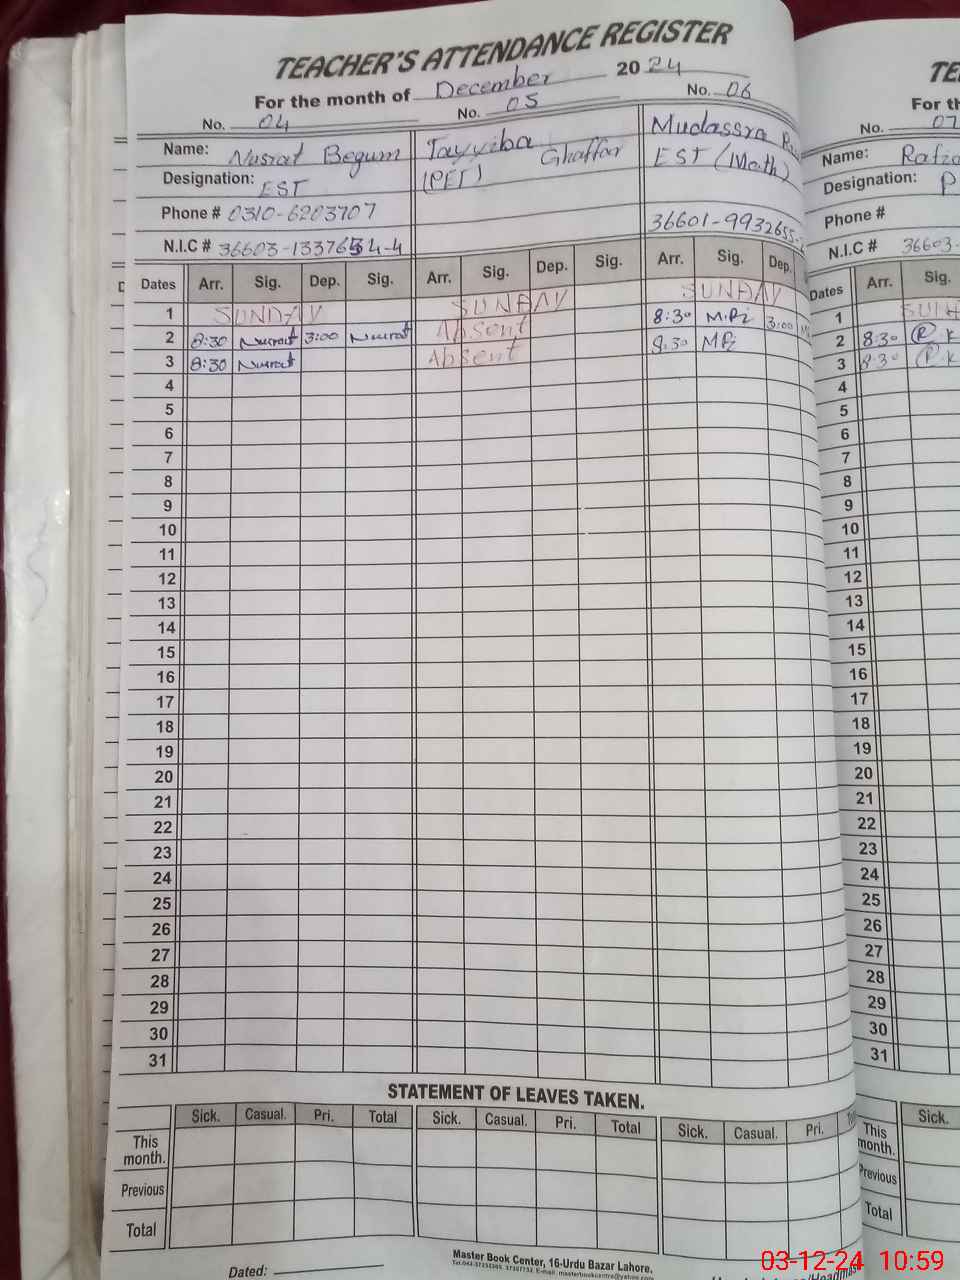 TEACHER'S ATTENDANCE REGISTER
For the month of December 2024
No. 04 No. 05 No. 06
Name: Nusrat Begum Tayyiba Ghaffar Mudassra
Designation: EST (PET) EST (Math)
Phone # 0310-6203707
N.I.C # 36603-1337654-4 36601-9932655-
Dates Arr. Sig. Dep. Sig. Arr. Sig. Dep. Sig. Arr. Sig. Dep.
1 SUNDAY SUNDAY SUNDAY
2 8:30 Nusrat 3:00 Nusrat Absent 8:30 3:00
3 8:30 Nusrat Absent 8:30
4
5
6
7
8
9
10
11
12
13
14
15
16
17
18
19
20
21
22
23
24
25
26
27
28
29
30
31
STATEMENT OF LEAVES TAKEN.
Sick. Casual. Pri. Total Sick. Casual. Pri. Total Sick. Casual. Pri.
This month.
Previous
Total
Dated:
Master Book Center, 16-Urdu Bazar Lahore.
No. 07
Name:
Designation:
Phone #
N.I.C # 36603-
Dates Arr. Sig.
1
2 8:30
3 8:30
4
5
6
7
8
9
10
11
12
13
14
15
16
17
18
19
20
21
22
23
24
25
26
27
28
29
30
31
Sick.
This month.
Previous
Total
03-12-24 10:59